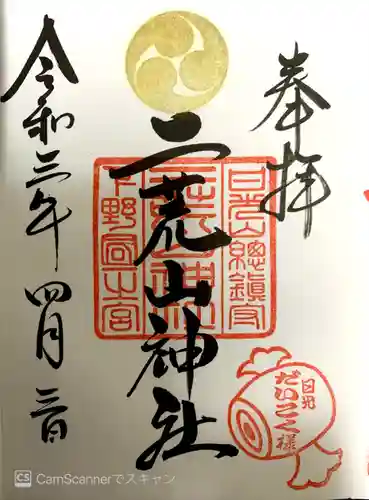 奉拝
二荒山神社
日光山總鎮守
二荒山神社
下野國一之宮
日光
だいこく様
令和三年四月三日
CS CamScannerでスキャン